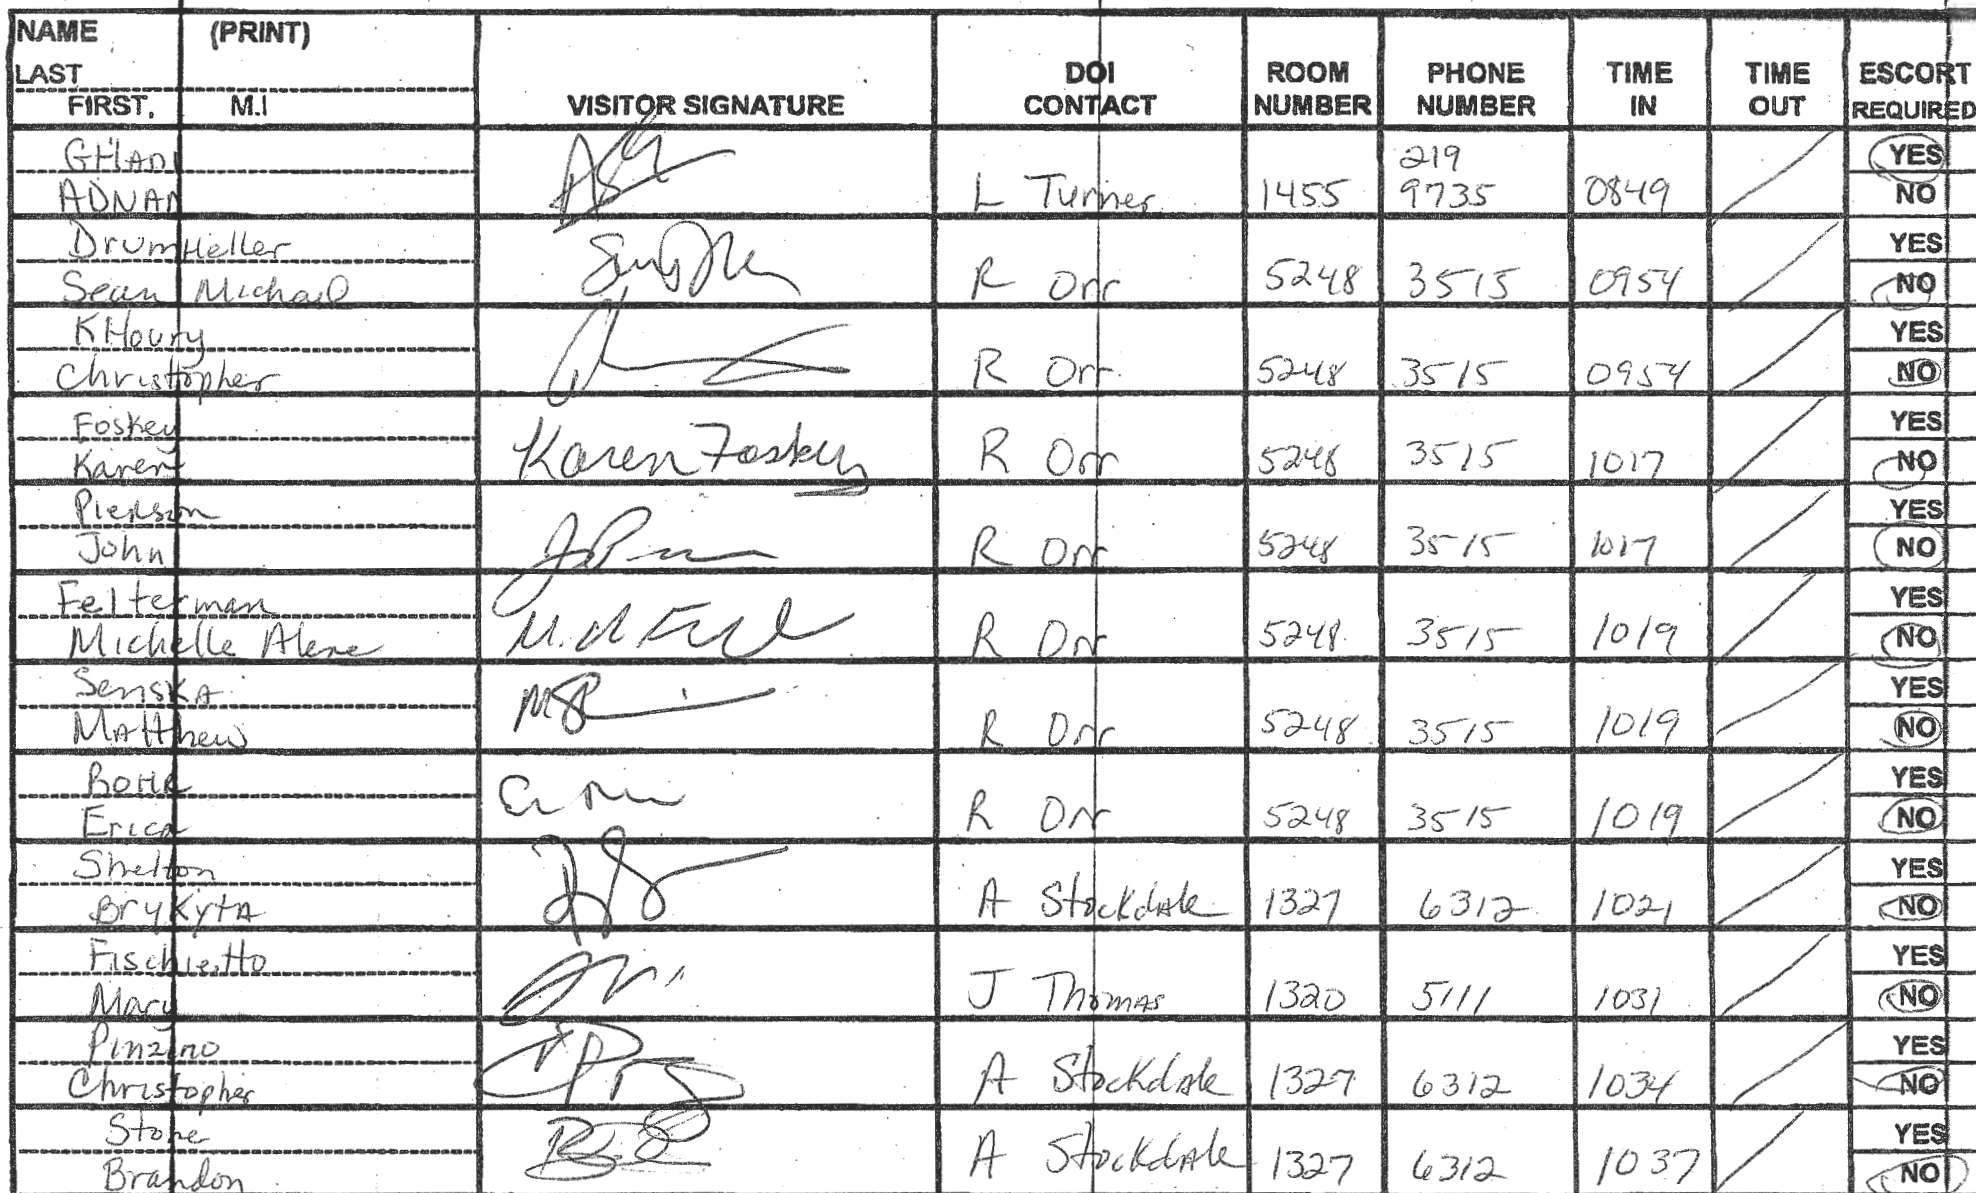 NAME (PRINT)
LAST
FIRST, M.I
VISITOR SIGNATURE
DOI CONTACT
ROOM NUMBER
PHONE NUMBER
TIME IN
TIME OUT
ESCORT REQUIRED
GHADI 219 YES
ADNAN L Turner 1455 9735 0849 NO
Drumheller YES
Sean Michael R Orr 5248 3515 0954 NO
KHoury YES
Christopher R Orr 5248 3515 0954 NO
Foskey YES
Karen Karen Foskey R Orr 5248 3515 1017 NO
Pierson YES
John R Orr 5248 3515 1017 NO
Felterman YES
Michelle Alene R Orr 5248 3515 1019 NO
SensKA YES
MAtthew R Orr 5248 3515 1019 NO
ROHR YES
EricA R Orr 5248 3515 1019 NO
Shelton YES
BryKytA A StockdAle 1327 6312 1021 NO
Fischietto YES
Mary J ThomAs 1320 5111 1031 NO
Pinzino YES
Christopher A StockdAle 1327 6312 1034 NO
Stone YES
Brandon A StockdAle 1327 6312 1037 NO